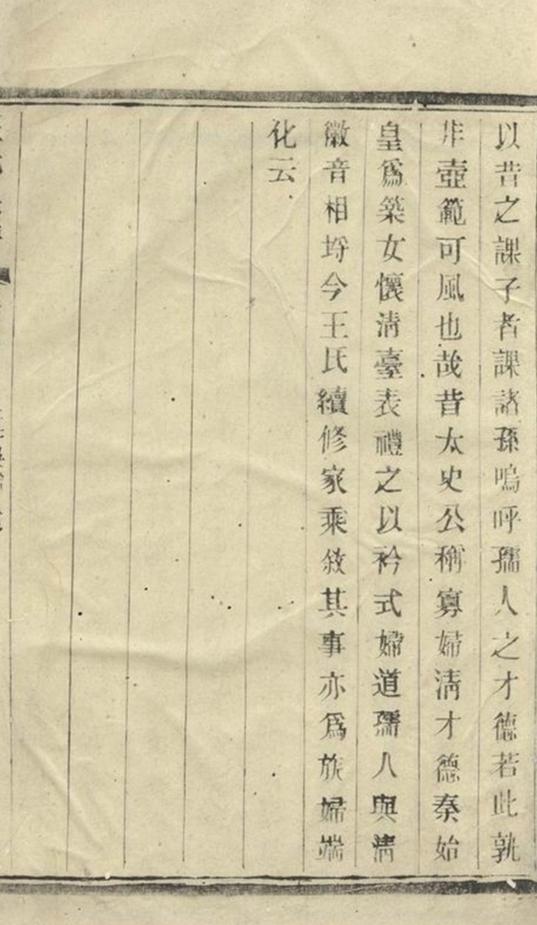 以昔之課子者課諸孫嗚呼孺人之才德若此孰
非壺範可風也哉昔太史公稱寡婦清才德秦始
皇爲築女懷清臺表禮之以衿式婦道孺人與清
徽音相埒今王氏續修家乘敘其事亦爲族婦端
化云